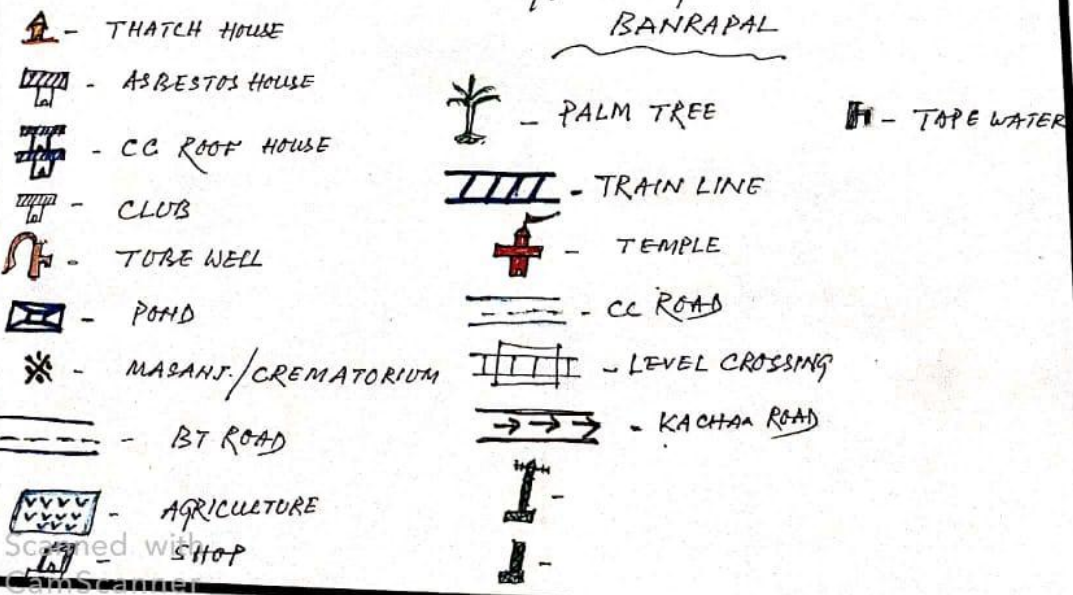 BANRAPAL
- THATCH HOUSE
- ASBESTOS HOUSE
- CC ROOF HOUSE
- CLUB
- TUBE WELL
- POND
- MASANI./CREMATORIUM
- BT ROAD
- AGRICULTURE
- SHOP
- PALM TREE
- TRAIN LINE
- TEMPLE
- CC ROAD
- LEVEL CROSSING
- KACHAA ROAD
-
-
- TAPE WATER
Scanned with
CamScanner